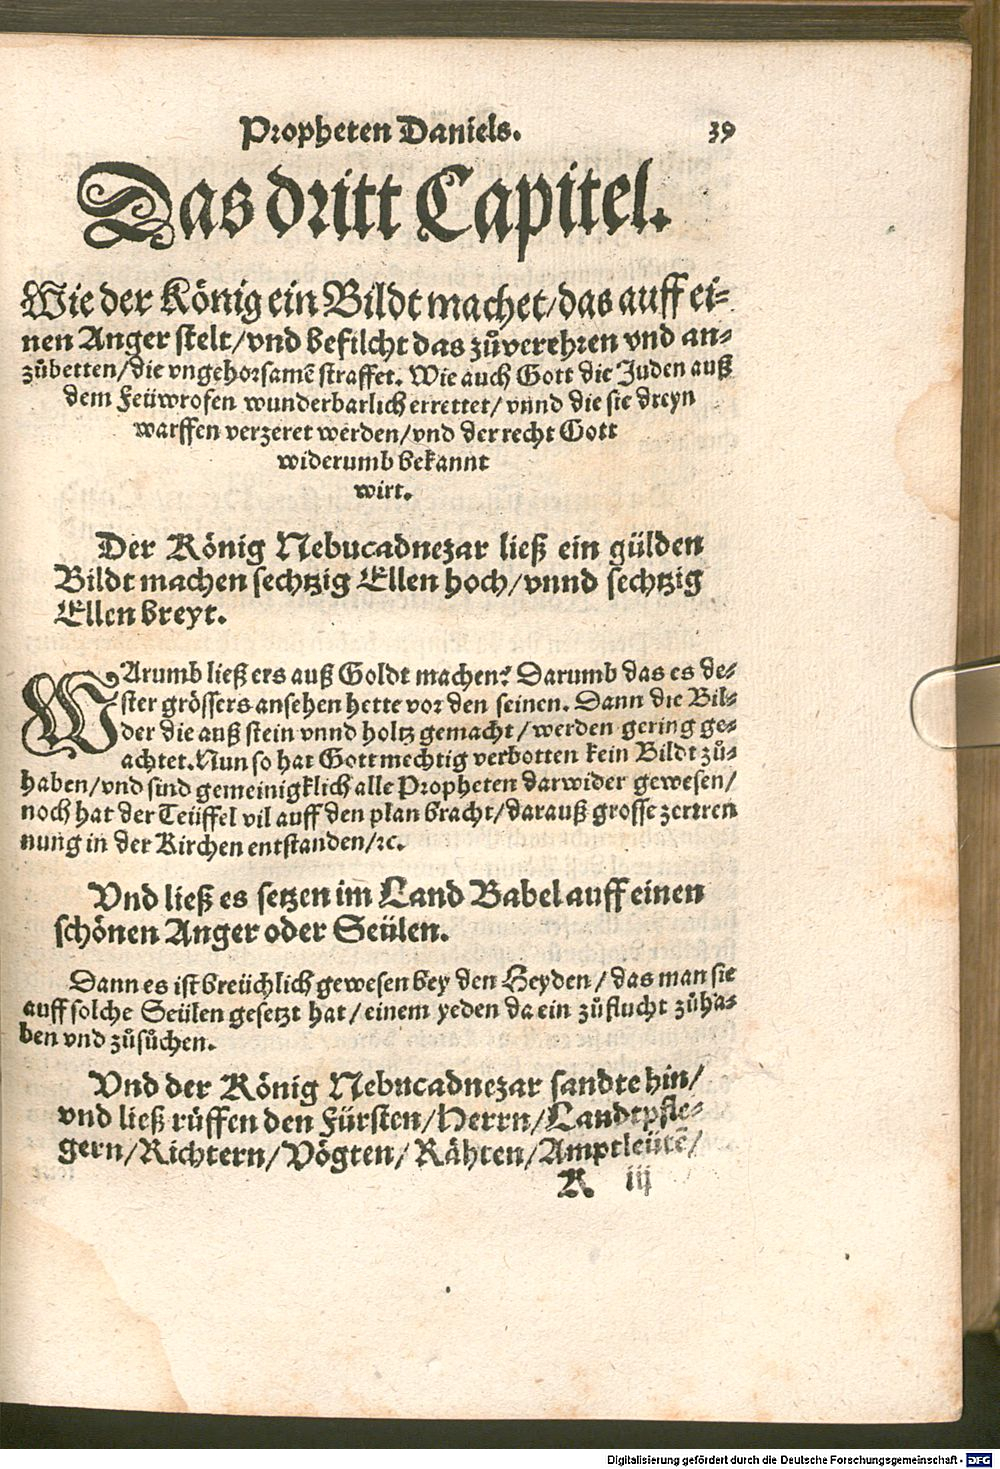 Propheten Daniels. 39
Das dritt Capitel.
Wie der König ein Bildt machet/das auff ei-
nen Anger stelt/vnd befilcht das zůverehren vnd an-
zůbetten/die vngehorsamē straffet. Wie auch Gott die Juden auß
dem Feüwrofen wunderbarlich errettet/vnnd die sie dreyn
warffen verzeret werden/vnd der recht Gott
widerumb bekannt
wirt.
Der König Nebucadnezar ließ ein gülden
Bildt machen sechtzig Ellen hoch/vnnd sechtzig
Ellen breyt.
WArumb ließ ers auß Goldt machen? Darumb das es de-
ster grössers ansehen hette vor den seinen. Dann die Bil-
der die auß stein vnnd holtz gemacht/werden gering ge-
achtet. Nun so hat Gott mechtig verbotten kein Bildt zů-
haben/vnd sind gemeinigklich alle Propheten darwider gewesen/
noch hat der Teüffel vil auff den plan bracht/darauß grosse zertren
nung in der Kirchen entstanden/ꝛc.
Vnd ließ es setzen im Land Babel auff einen
schönen Anger oder Seülen.
Dann es ist breüchlich gewesen bey den Heyden/das man sie
auff solche Seülen gesetzt hat/einem yeden da ein zůflucht zůha-
ben vnd zůsůchen.
Vnd der König Nebucadnezar sandte hin/
vnd ließ rüffen den Fürsten/Herrn/Landtpfle-
gern/Richtern/Vögten/Rähten/Amptleütē/
K iij
Digitalisierung gefördert durch die Deutsche Forschungsgemeinschaft - DFG